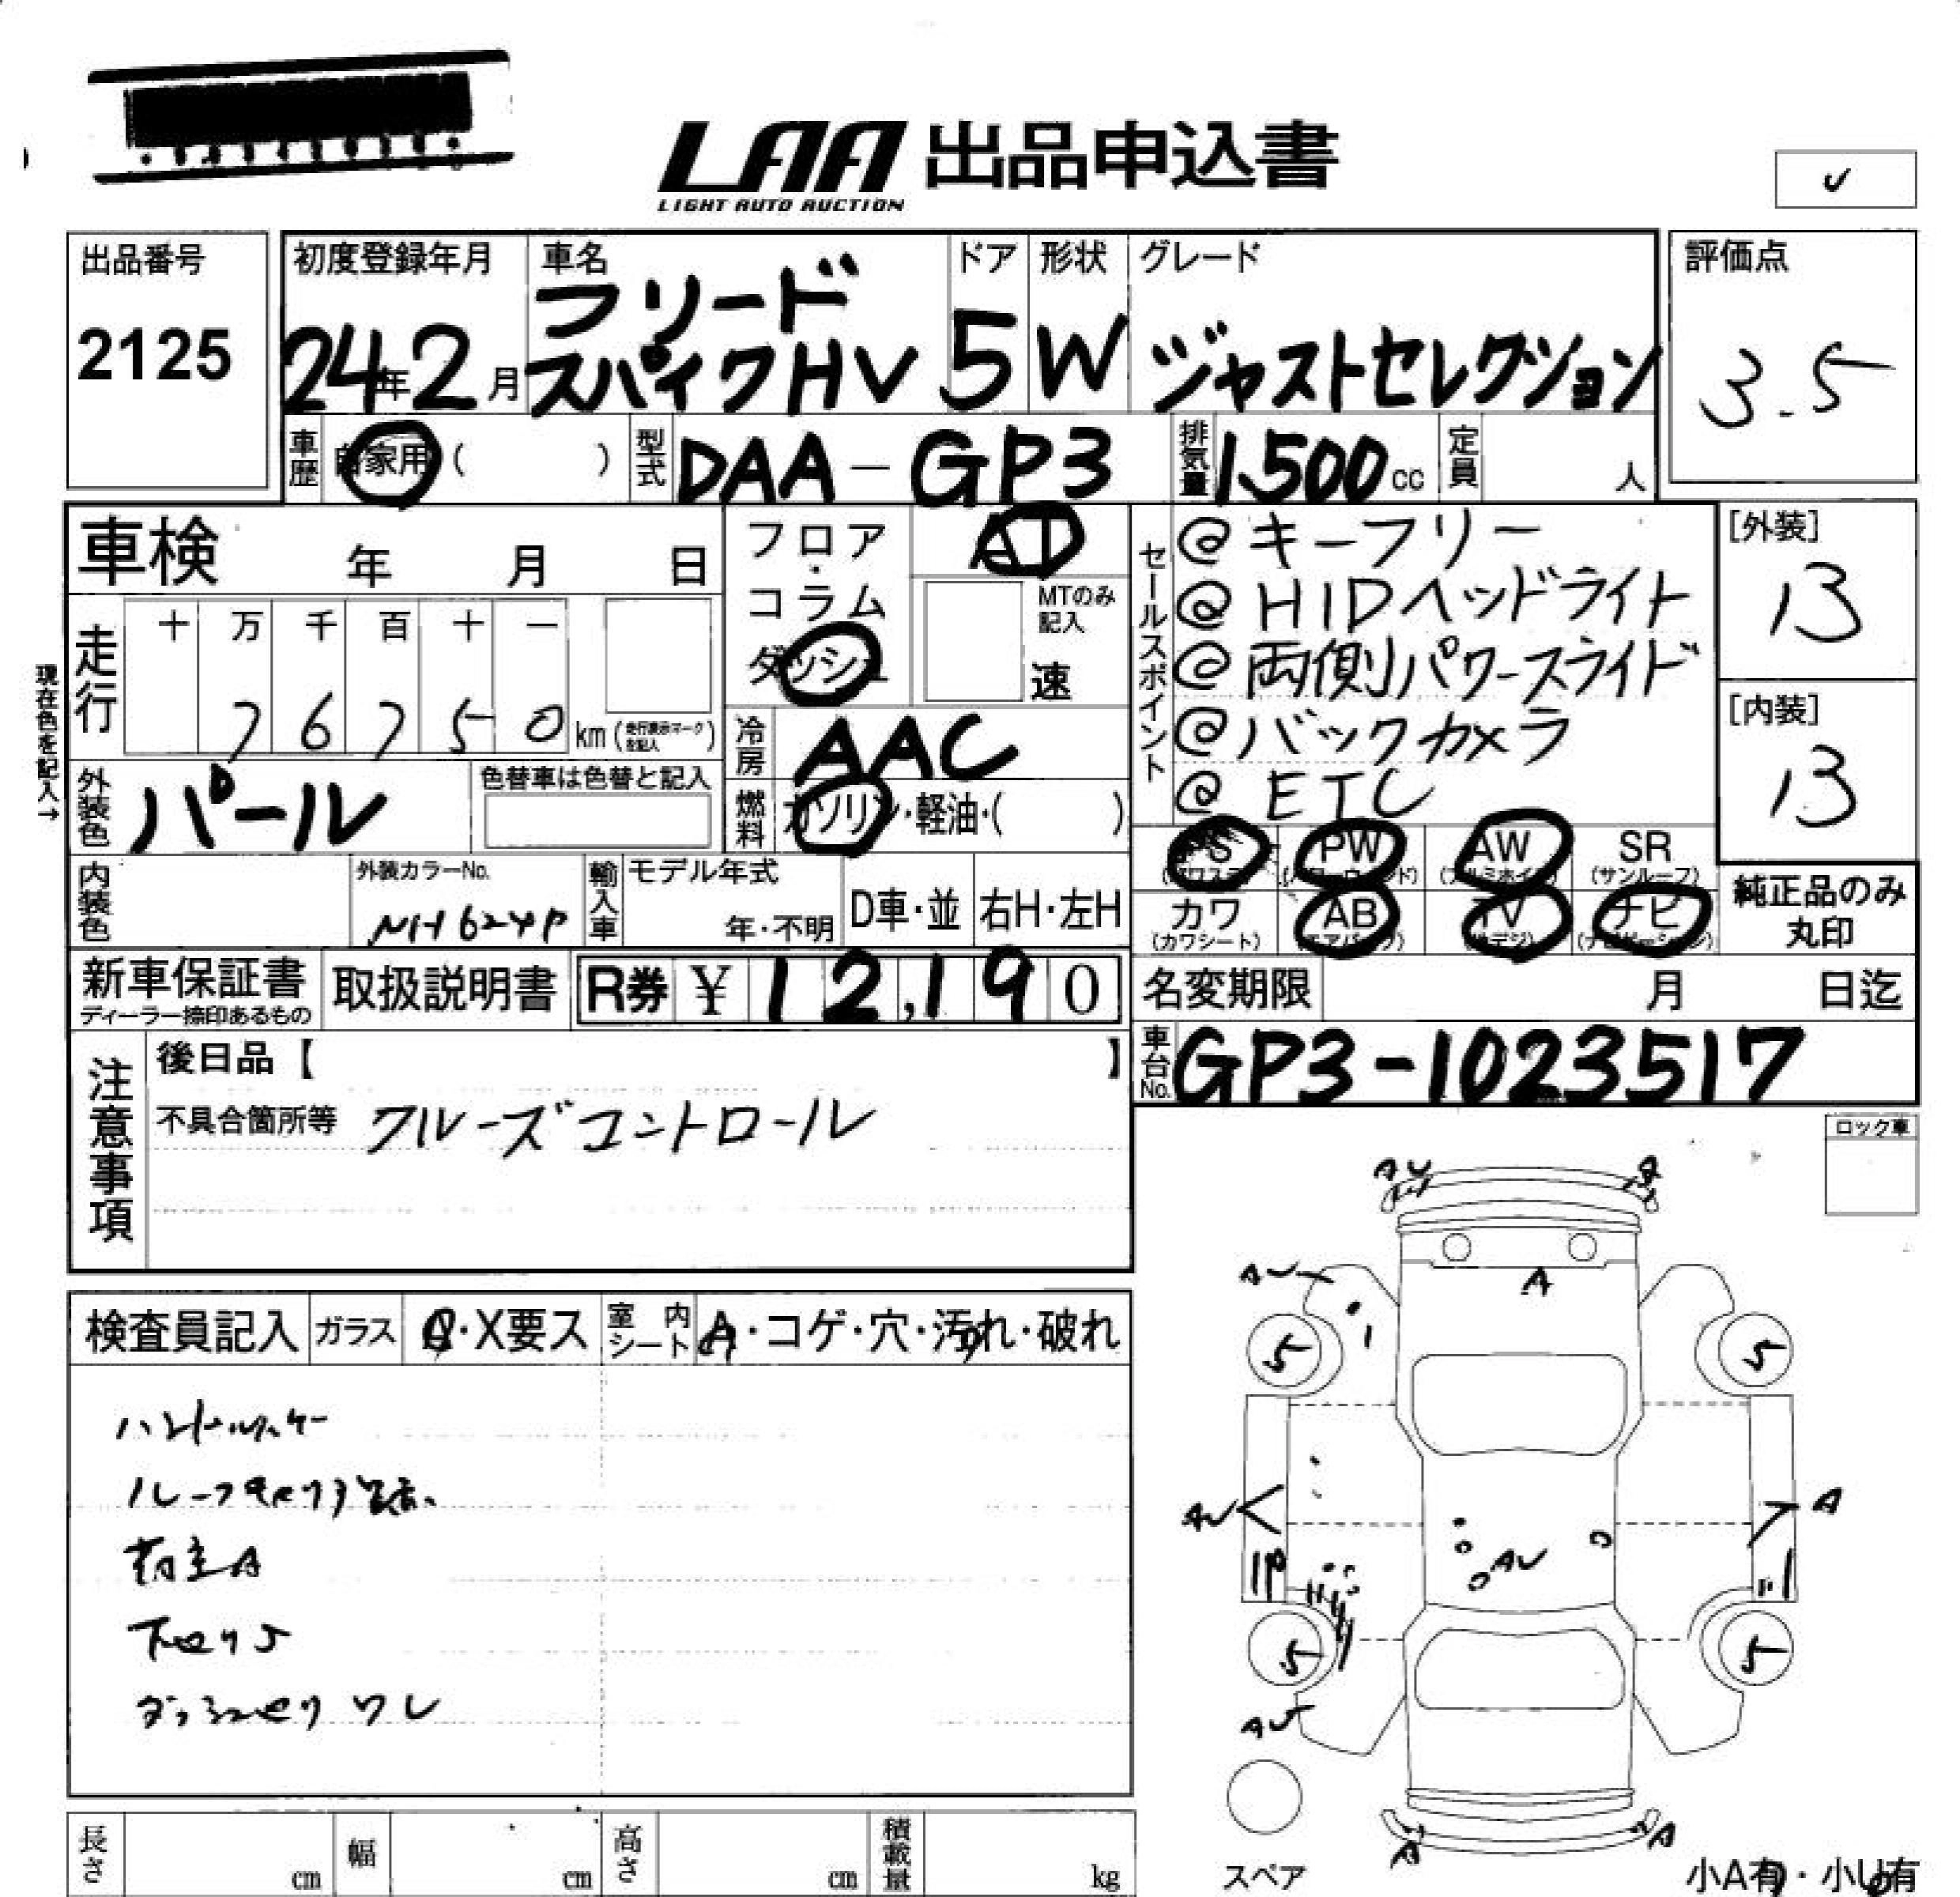 LAA 出品申込書
LIGHT AUTO AUCTION
出品番号
2125
初度登録年月
24年2月
車名
フリード
スパイクHV
ドア
5
形状
W
グレード
ジャストセレクション
評価点
3.5
車歴 自家用 ( )
型式 DAA-GP3
排気量 1.500 cc
定員 人
車検 年 月 日
走行
十 万 千 百 十 一
7 6 7 5 0 km (走行表示マークを記入)
現在色を記入→
外装色 パール
色替車は色替と記入
フロア・
コラム
ダッシュ
AT
MTのみ記入
速
冷房 AAC
燃料 ガソリン・軽油・( )
セールスポイント
@キーフリー
@HIDヘッドライト
@両側パワースライド
@バックカメラ
@ETC
[外装]
13
[内装]
13
内装色
外装カラーNo.
NH624P
輸入車
モデル年式
年・不明
D車・並
右H・左H
PS PW AW SR
(パワステ) (パワーウィンド) (アルミホイル) (サンルーフ)
カワ AB TV ナビ
(カワシート) (エアバッグ) (地デジ) (ナビゲーション)
純正品のみ
丸印
新車保証書
ディーラー捺印あるもの
取扱説明書
R券 ¥ 12,190
名変期限 月 日迄
車台No. GP3-1023517
注意事項
後日品【 】
不具合箇所等 クルーズコントロール
ロック車
検査員記入
ガラス
・X要ス
室内シート
A・コゲ・穴・汚れ・破れ
ハンドルスレ
荷室A
下回りS
AU
A
AU
A
5
5
AU
A
AU
5
5
AU
A
A
スペア
小A有・小U有
長さ cm
幅 cm
高さ cm
積載量 kg